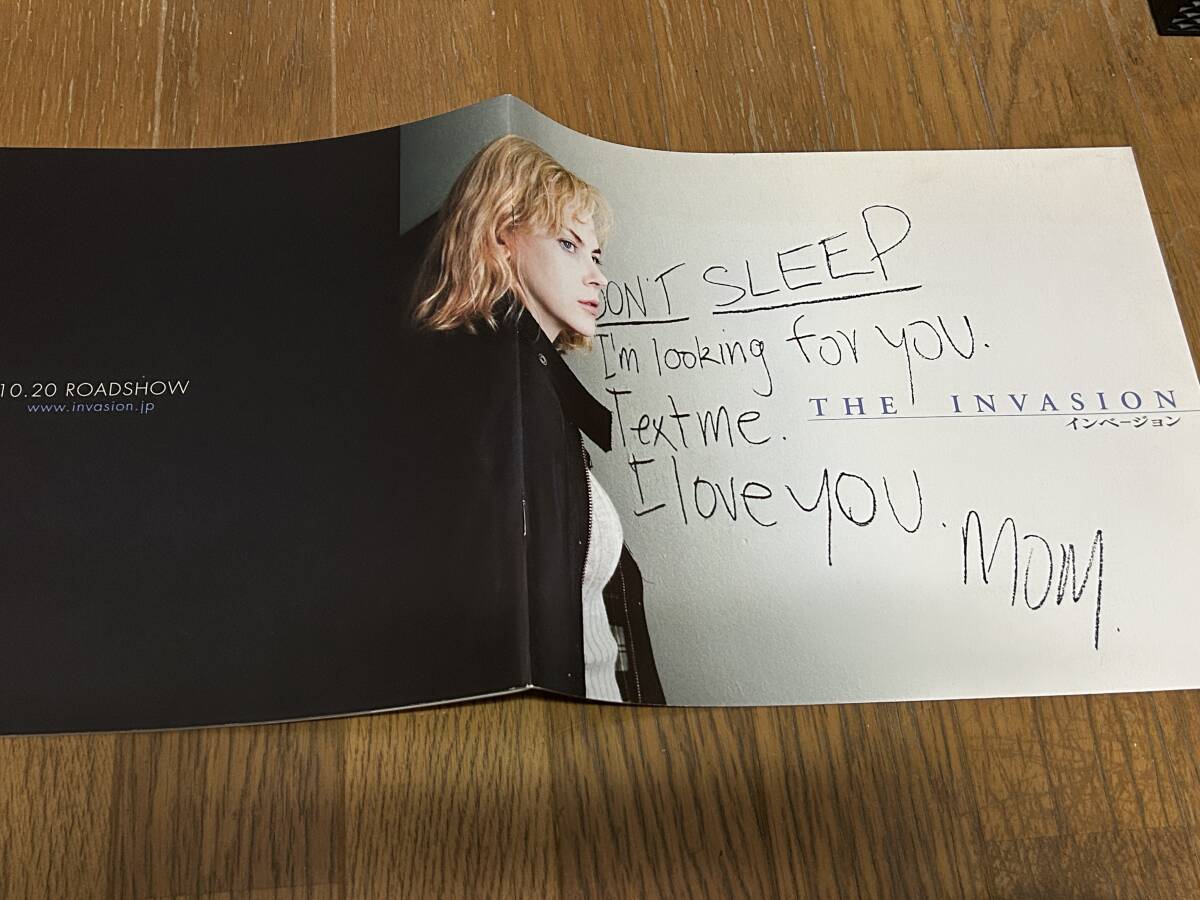 10.20 ROADSHOW
www.invasion.jp
DON'T SLEEP
I'm looking for you.
Text me.
I love you.
MOM.
THE INVASION
インベージョン